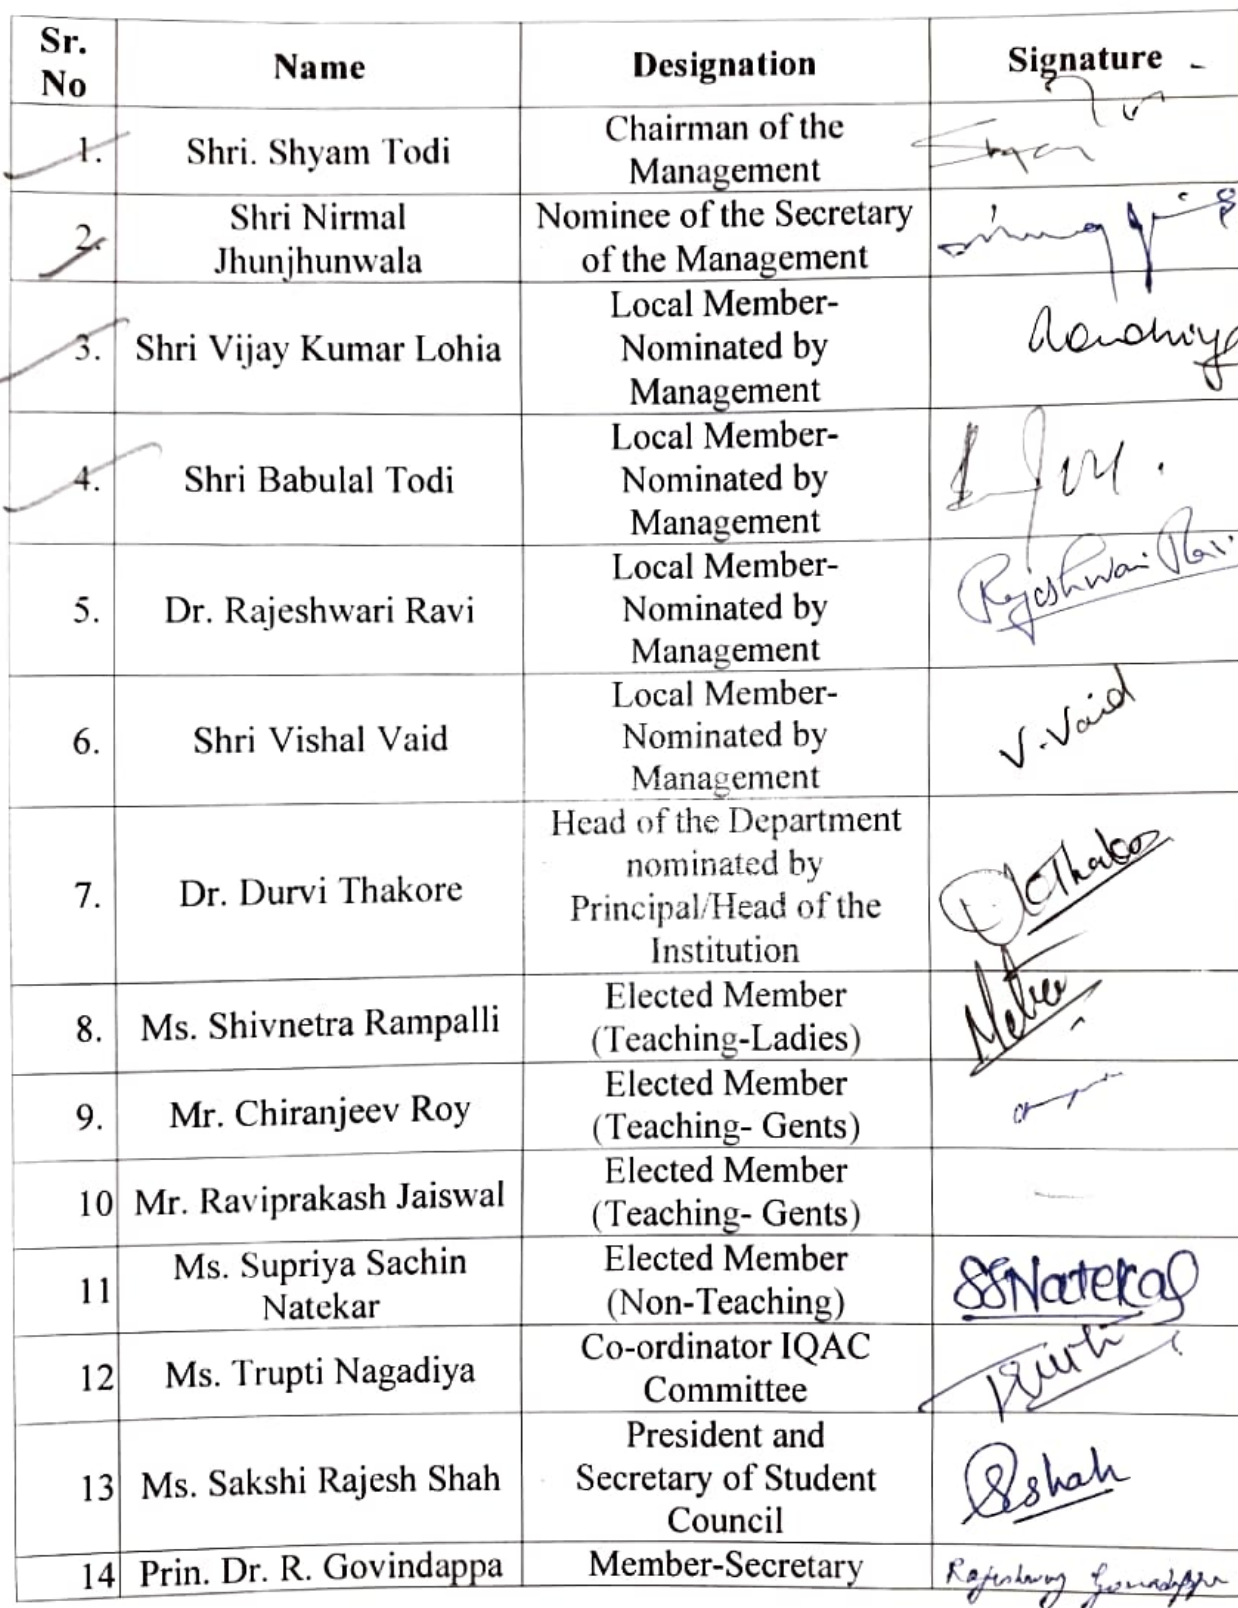 Sr.
No
Name
Designation
Signature
1.
Shri. Shyam Todi
Chairman of the
Management
Shyam
2.
Shri Nirmal
Jhunjhunwala
Nominee of the Secretary
of the Management
3.
Shri Vijay Kumar Lohia
Local Member-
Nominated by
Management
4.
Shri Babulal Todi
Local Member-
Nominated by
Management
5.
Dr. Rajeshwari Ravi
Local Member-
Nominated by
Management
Rajeshwari Ravi
6.
Shri Vishal Vaid
Local Member-
Nominated by
Management
V. Vaid
7.
Dr. Durvi Thakore
Head of the Department
nominated by
Principal/Head of the
Institution
8.
Ms. Shivnetra Rampalli
Elected Member
(Teaching-Ladies)
9.
Mr. Chiranjeev Roy
Elected Member
(Teaching- Gents)
10
Mr. Raviprakash Jaiswal
Elected Member
(Teaching- Gents)
11
Ms. Supriya Sachin
Natekar
Elected Member
(Non-Teaching)
SSNatekar
12
Ms. Trupti Nagadiya
Co-ordinator IQAC
Committee
13
Ms. Sakshi Rajesh Shah
President and
Secretary of Student
Council
Sshah
14
Prin. Dr. R. Govindappa
Member-Secretary